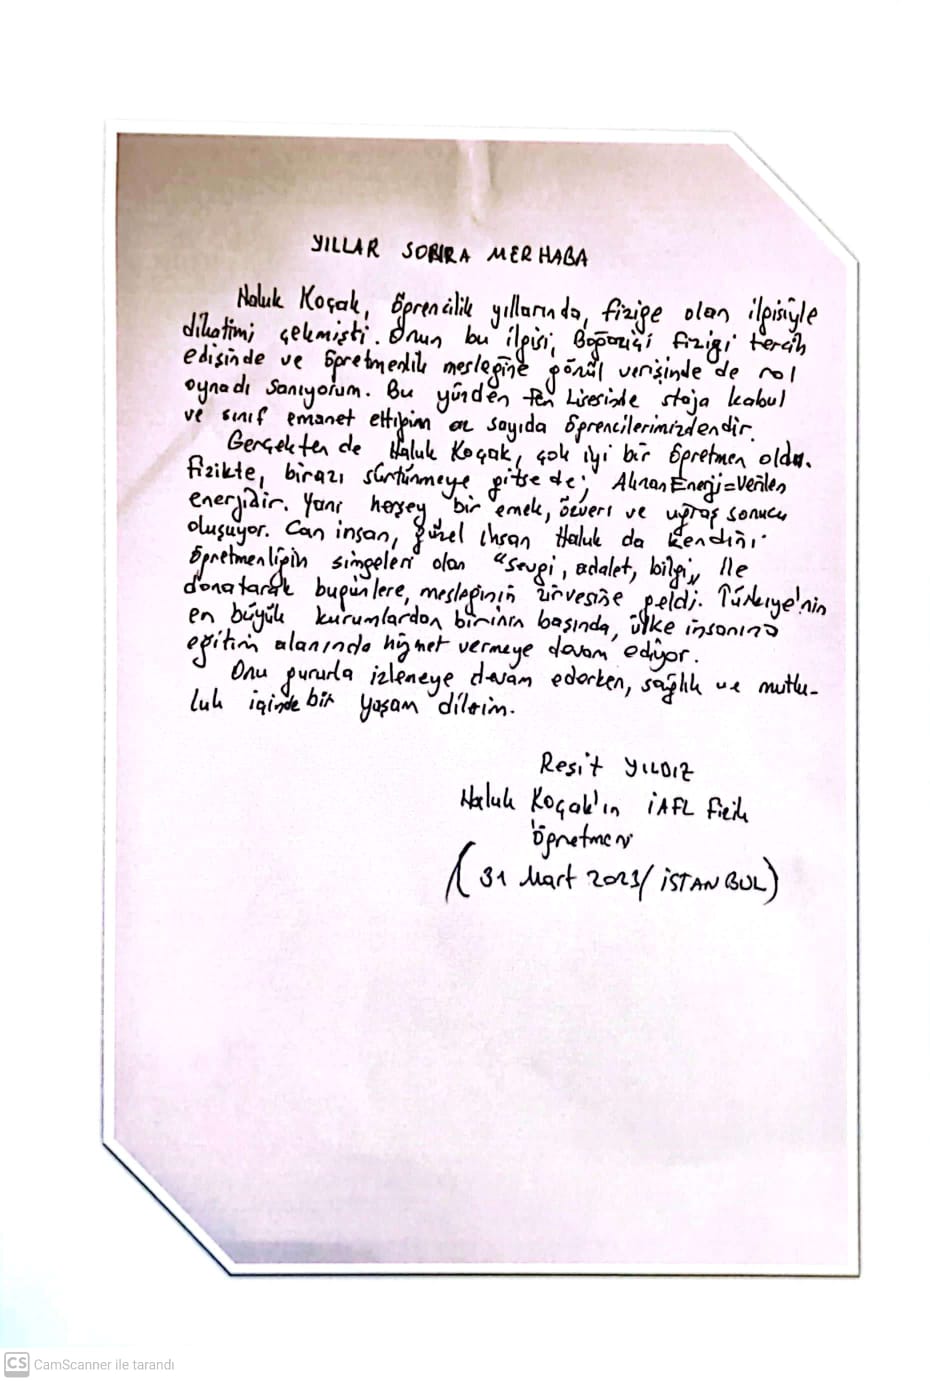 YILLAR SONRA MERHABA
Haluk Koçak, öğrencilik yıllarında, fiziğe olan ilgisiyle
dikkatimi çekmişti. Onun bu ilgisi, Boğaziçi Fiziği tercih
edişinde ve öğretmenlik mesleğine gönül verişinde de rol
oynadı sanıyorum. Bu yüzden Fen Lisesinde staja kabul
ve sınıf emanet ettiğim az sayıda öğrencilerimizdendir.
Gerçekten de Haluk Koçak, çok iyi bir öğretmen oldu.
Fizikte, birazı sürtünmeye gitse de; Alınan Enerji=Verilen
enerjidir. Yani herşey bir emek, özveri ve uğraş sonucu
oluşuyor. Can insan, güzel insan Haluk da kendini
öğretmenliğin simgeleri olan "sevgi, adalet, bilgi,, ile
donatarak bugünlere, mesleğinin zirvesine geldi. Türkiye'nin
en büyük kurumlardan birinin başında, ülke insanına
eğitim alanında hizmet vermeye devam ediyor.
Onu gururla izlemeye devam ederken, sağlık ve mutlu-
luk içinde bir yaşam dilerim.
Reşit YILDIZ
Haluk Koçak'ın İAFL Fizik
öğretmeni
(31 Mart 2023/ İSTANBUL)
CS CamScanner ile tarandı